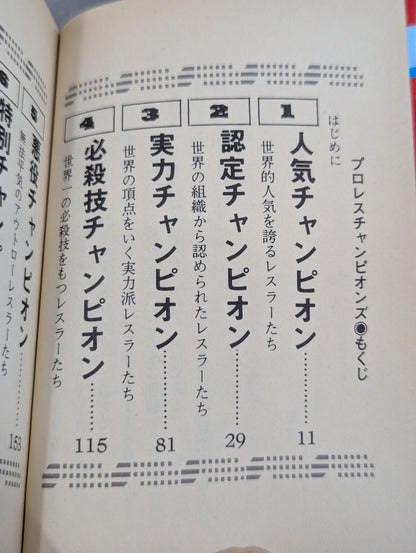 プロレスチャンピオンズ◉もくじ
はじめに
1
人気チャンピオン………11
世界的人気を誇るレスラーたち
2
認定チャンピオン………29
世界の組織から認められたレスラーたち
3
実力チャンピオン………81
世界の頂点をいく実力派レスラーたち
4
必殺技チャンピオン………115
世界一の必殺技をもつレスラーたち
5
悪役チャンピオン………153
無法空気のアウトローレスラーたち
6
特別チャンピ